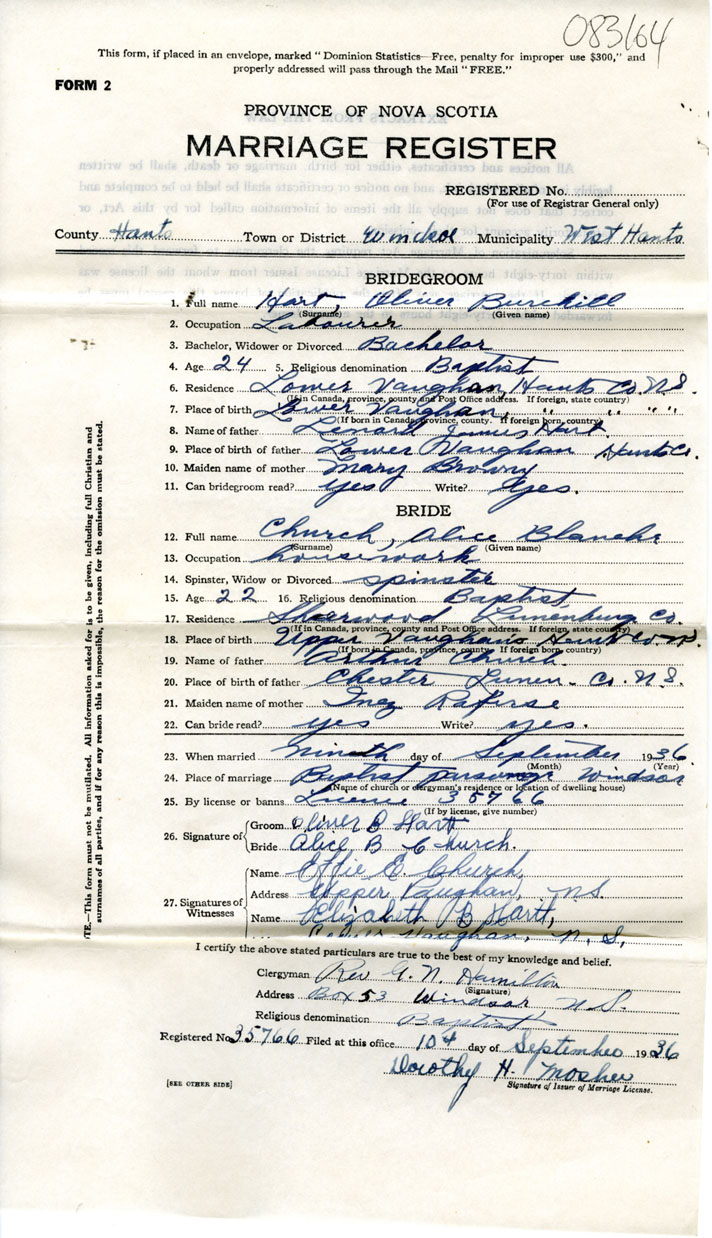 083164
This form, if placed in an envelope, marked “ Dominion Statistics— Free, penalty for improper use $300,” and
properly addressed will pass through the Mail “ FREE.”
FORM 2
PROVINCE OF NOVA SCOTIA
MARRIAGE REGISTER
REGISTERED No.
(For use of Registrar General only)
County Hants Town or District Windsor Municipality West Hants
BRIDEGROOM
1. Full name Hart, Oliver Burchill
(Surname) (Given name)
2. Occupation Labourer
3. Bachelor, Widower or Divorced Bachelor
4. Age 24 5. Religious denomination Baptist
6. Residence Lower Vaughan, Hants Co. N.S.
(If in Canada, province, county and Post Office address. If foreign, state country)
7. Place of birth Lower Vaughan, " " " "
(If born in Canada, province, county. If foreign born, country)
8. Name of father Lenard James Hart
9. Place of birth of father Lower Vaughan Hants Co.
10. Maiden name of mother Mary Browny
11. Can bridegroom read? yes Write? yes.
BRIDE
12. Full name Church, Alice Blanche
(Surname) (Given name)
13. Occupation housework
14. Spinster, Widow or Divorced spinster
15. Age 22 16. Religious denomination Baptist
17. Residence Sherwood Lunenburg Co.
(If in Canada, province, county and Post Office address. If foreign, state country)
18. Place of birth Upper Vaughans Hants Co.
(If born in Canada, province, county. If foreign born, country)
19. Name of father Arthur Church
20. Place of birth of father Chester Lunen. Co. N.S.
21. Maiden name of mother Inez
22. Can bride read? yes Write? yes.
23. When married ninth day of September 1936
(Month) (Year)
24. Place of marriage Baptist parsonage Windsor
(Name of church or clergyman's residence or location of dwelling house)
25. By license or banns License 35766
(If by license, give number)
26. Signature of Groom Oliver B Hart
Bride Alice B Church.
27. Signatures of Witnesses
Name Effie E. Church,
Address Upper Vaughan, N.S.
Name Elizabeth B Hartt,
Lower Vaughan, N. S,
I certify the above stated particulars are true to the best of my knowledge and belief.
Clergyman Rev G. N. Hamilton
(Signature)
Address Box 53 Windsor N.S.
Religious denomination Baptist
Registered No. 35766 Filed at this office 10th day of September 1936
Dorothy H. Mosher
[SEE OTHER SIDE] Signature of Issuer of Marriage License.
TE.—This form must not be mutilated. All information asked for is to be given, including full Christian and
surnames of all parties, and if for any reason this is impossible, the reason for the omission must be stated.